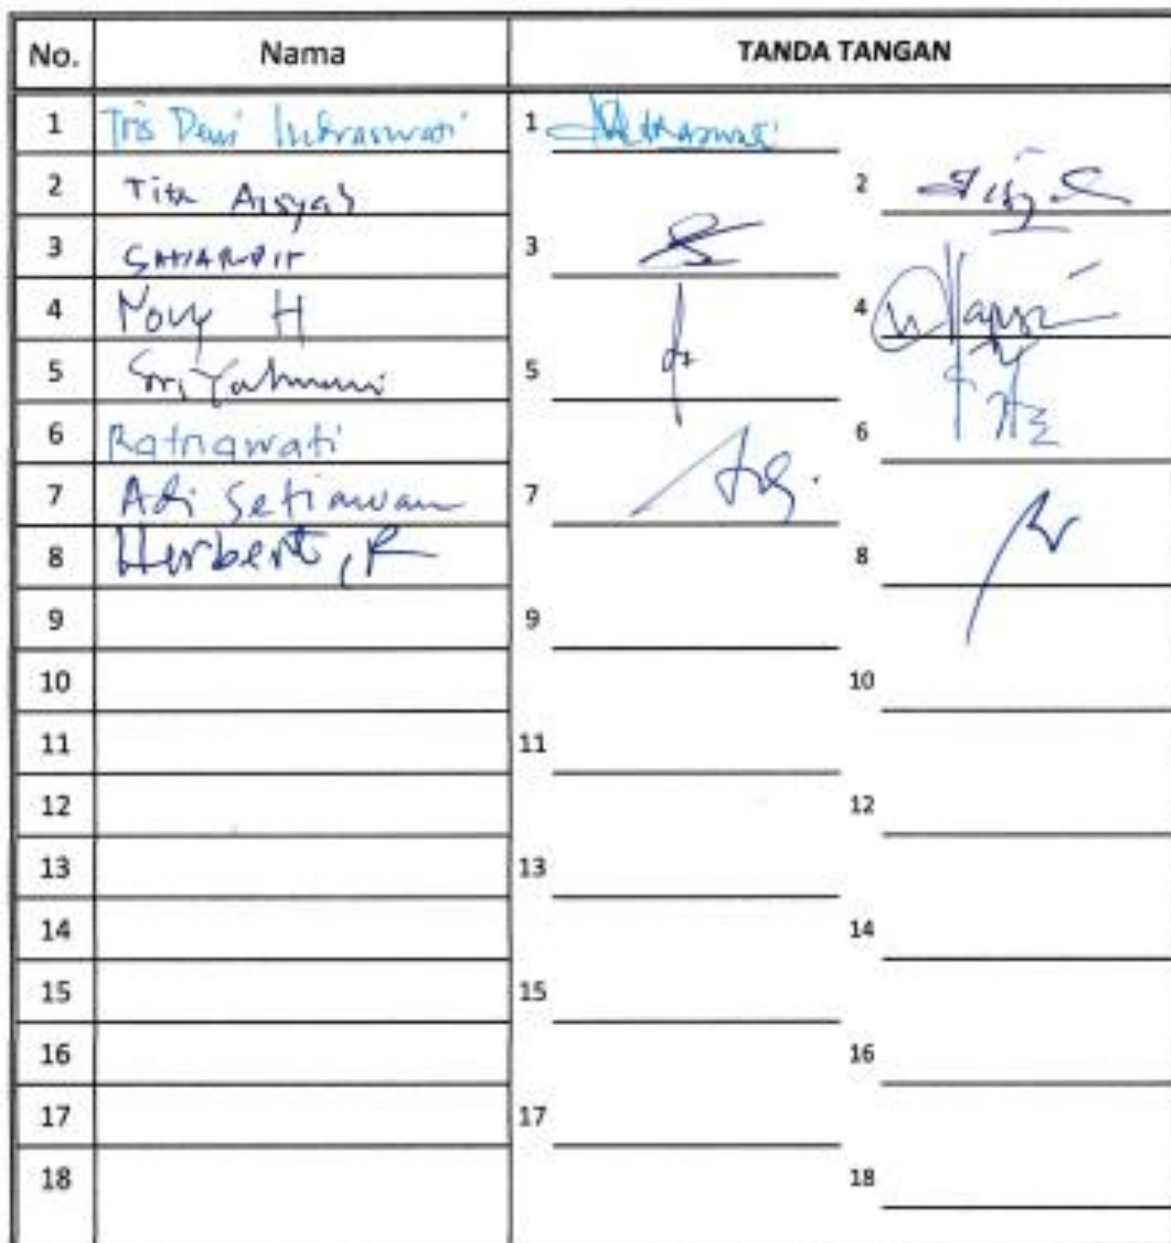 No. Nama TANDA TANGAN
1 Tris Dewi Indraswati 1
2 Tita Aisyah 2
3 3
4 Novy H 4
5 Sri 5
6 Ratnawati 6
7 Adi Setiawan 7
8 Herbert, R 8
9 9
10 10
11 11
12 12
13 13
14 14
15 15
16 16
17 17
18 18